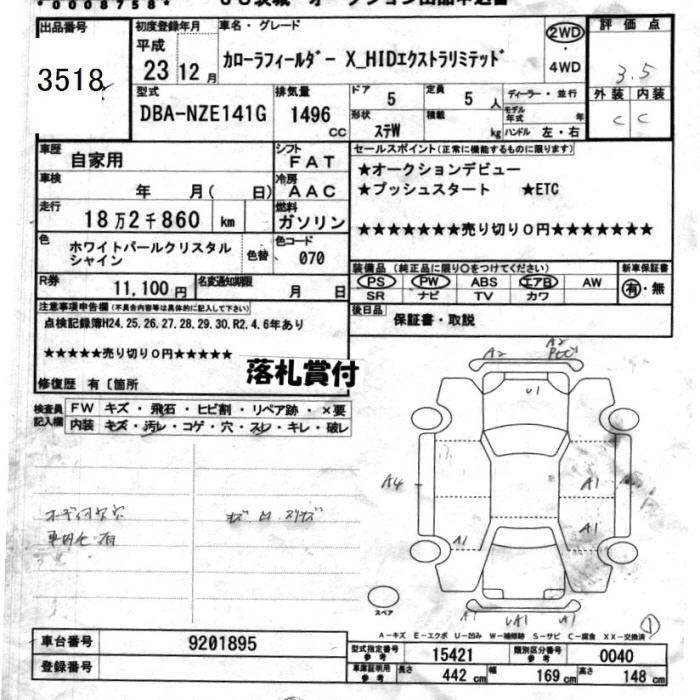 *0008758*
出品番号
3518
初度登録年月
平成
23 12月
車名・グレード
カローラフィールダー X_HIDエクストラリミテッド
2WD
・
4WD
評価点
3.5
外装 内装
C C
型式
DBA-NZE141G
排気量
1496
CC
ドア 5
定員 5 人
形状 ステW
積載 kg
ディーラー・並行
モデル年式 年
ハンドル 左・右
車歴
自家用
シフト
FAT
車検
年 月( 日)
冷房
AAC
走行
18万2千860 km
燃料
ガソリン
色
ホワイトパールクリスタル
シャイン
色替
色コード
070
R券
11,100円
名変通知期限
月 日
セールスポイント(正常に機能するものに限ります)
★オークションデビュー
★プッシュスタート ★ETC
★★★★★★★売り切り0円★★★★★★★
装備品 (純正品に限り○をつけてください)
PS PW ABS エアB AW
SR ナビ TV カワ
新車保証書
有・無
後日品
保証書・取説
注意事項申告欄(不具合内容等は具体的に記入して下さい)
点検記録簿H24.25.26.27.28.29.30.R2.4.6年あり
★★★★★売り切り0円★★★★★
落札賞付
修復歴 有〔箇所
検査員
記入欄
FW キズ・飛石・ヒビ割・リペア跡・×要
内装 キズ・汚レ・コゲ・穴・スレ・キレ・破レ
A2
A2
U1
A4
A1
A1
A1
A1
A1
UA1
スペア
1
A-キズ E-エクボ U-凹み W-補修跡 S-サビ C-腐食 XX-交換済
車台番号
9201895
登録番号
型式指定番号
参考
15421
類別区分番号
参考
0040
車庫証明用
参考
長さ 442 cm
幅 169 cm
高さ 148 cm